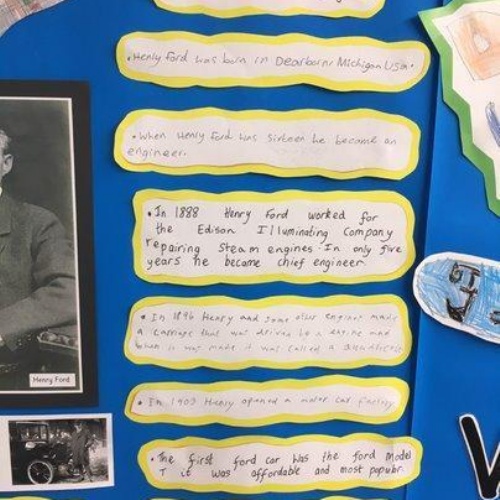 • Henry Ford was born in Dearborn, Michigan USA.
• When Henry Ford was sixteen he became an
engineer.
• In 1888 Henry Ford worked for
the Edison Illuminating Company
repairing Steam engines. In only five
years he became chief engineer
• In 1896 Henry and some other engineers made
a carriage that was driven be a engine and
when it was made it was called a
• In 1903 Henry opened a motor car factory
• The first ford car was the ford Model
T it was affordable and most popular.
Henry Ford